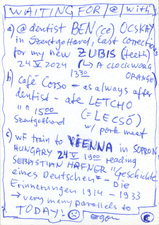 WAITING FOR @ (with)
a) @ dentist BEN(ce) OCSKAY
in Szentgotthard, last correction
for my new ZUBIS (teeth)
24 V 2024 (→ A CLOCKWORK
13:50 ORANGE)
b) Café Corso – as always after
dentist – ate LETCHO
15:00 (= LECSÓ)
Szentgotthard w/ pork meat
c) wf train to VIENNA in
HUNGARY 24 V 1900 reading
SEBASTIAN HAFNER "Geschichte
eines Deutschen" – Die
Erinnerungen 1914 – 1933
→ very many parallels to
TODAY!